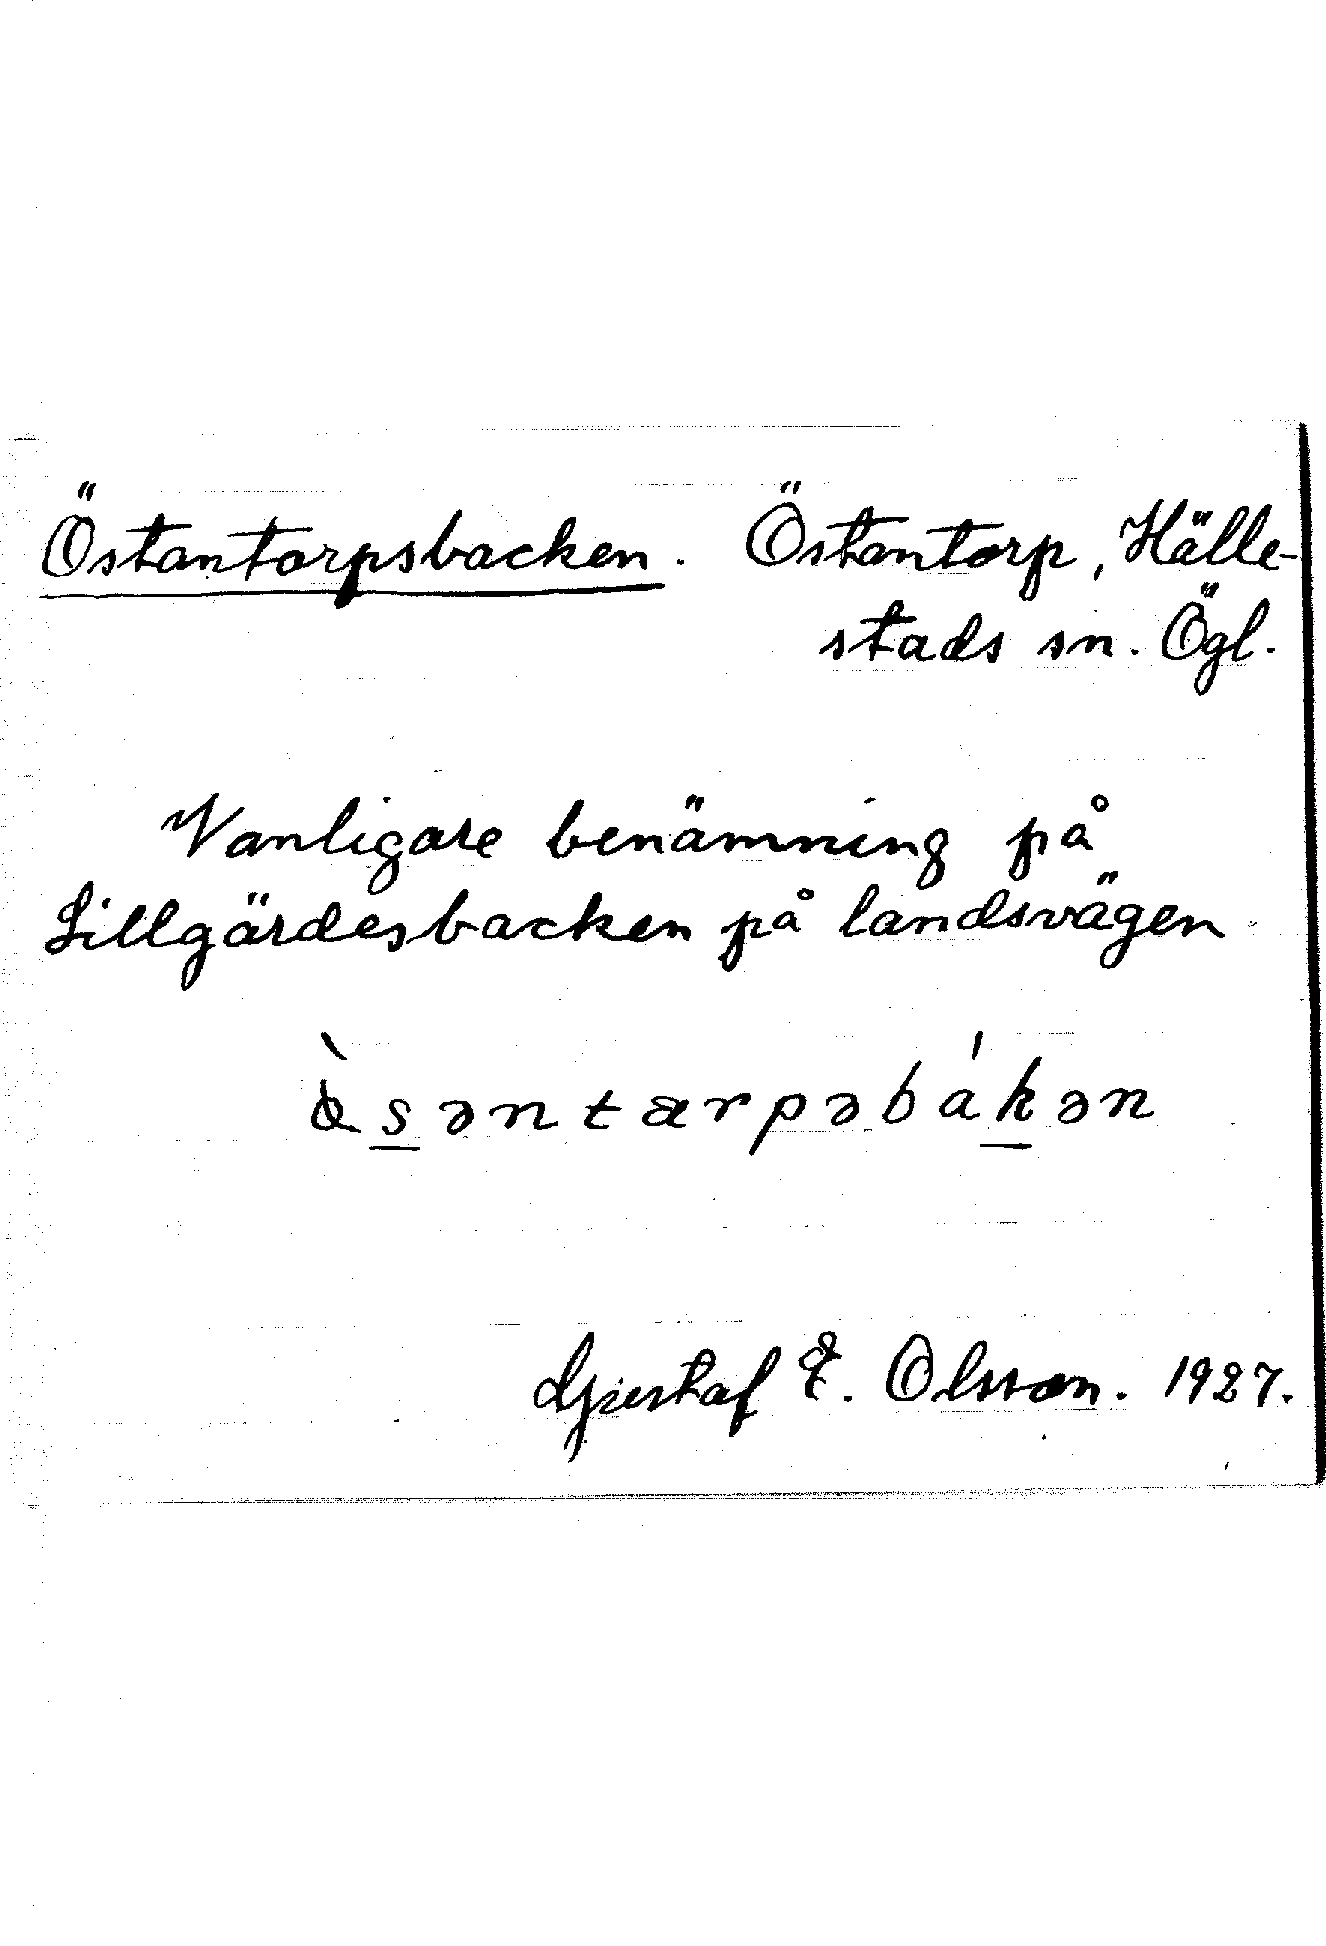 Östantorpsbacken. Östantorp, Hälle-
stads sn. Ögl.
Vanligare benämning på
Lillgärdesbacken på landsvägen
Gustaf E. Olsson. 1927.